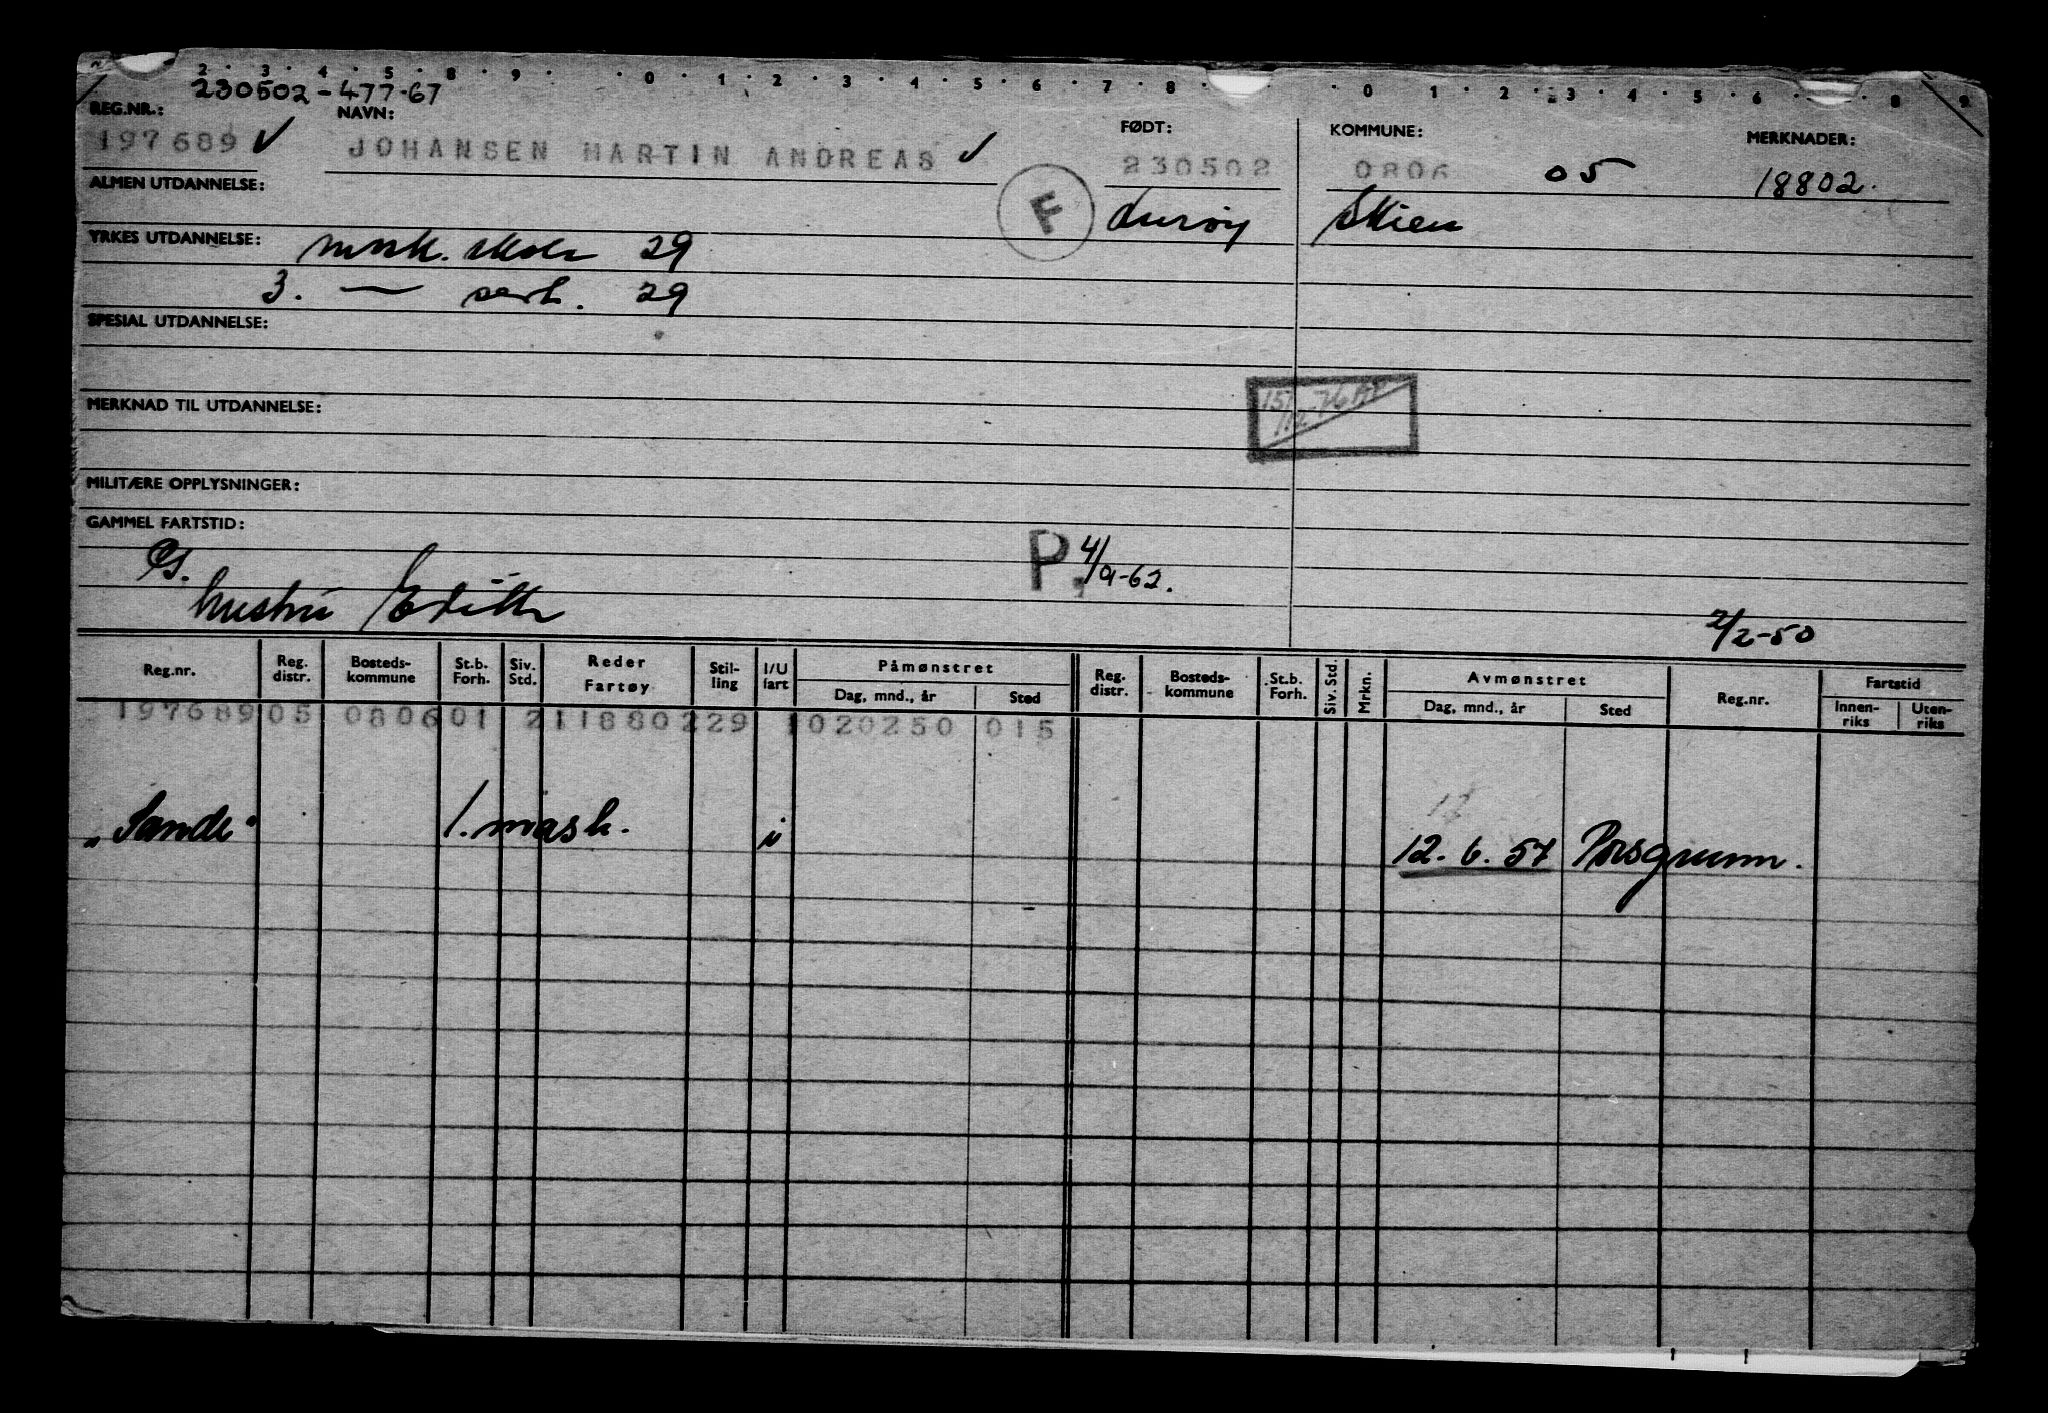 2 . 3 . 4 . 5 . 8 . 9 . . 0 . 1 . 2 . 3 . 4 . 5 . 6 . 7 . 8 . . 0 . 1 . 2 . 3 . 4 . 5 . 6 . . 8 . 9
230502-477-67
REG.NR.: NAVN: FØDT: KOMMUNE: MERKNADER:
197689 ✓ JOHANSEN MARTIN ANDREAS ✓ 230502 0806 05 18802.
ALMEN UTDANNELSE: F Lurøy Skien
YRKES UTDANNELSE: mask. skole 29
3. — sert. 29
SPESIAL UTDANNELSE:
15/12-76
MERKNAD TIL UTDANNELSE:
MILITÆRE OPPLYSNINGER:
GAMMEL FARTSTID:
P. 4/9-62.
hustru Edith
2/2-50
Reg.nr. Reg. distr. Bosteds-kommune St.b. Forh. Siv. Std. Reder Fartøy Stil-ling I/U fart Påmønstret Dag, mnd., år Sted Reg. distr. Bosteds-kommune St.b. Forh. Siv. Std. Mrkn. Avmønstret Dag, mnd., år Sted Reg.nr. Fartstid Innen-riks Uten-riks
197689 05 0806 01 2 11880229 1 020250 015
"Sande" 1. mask. i 12.6.57 Porsgrunn.